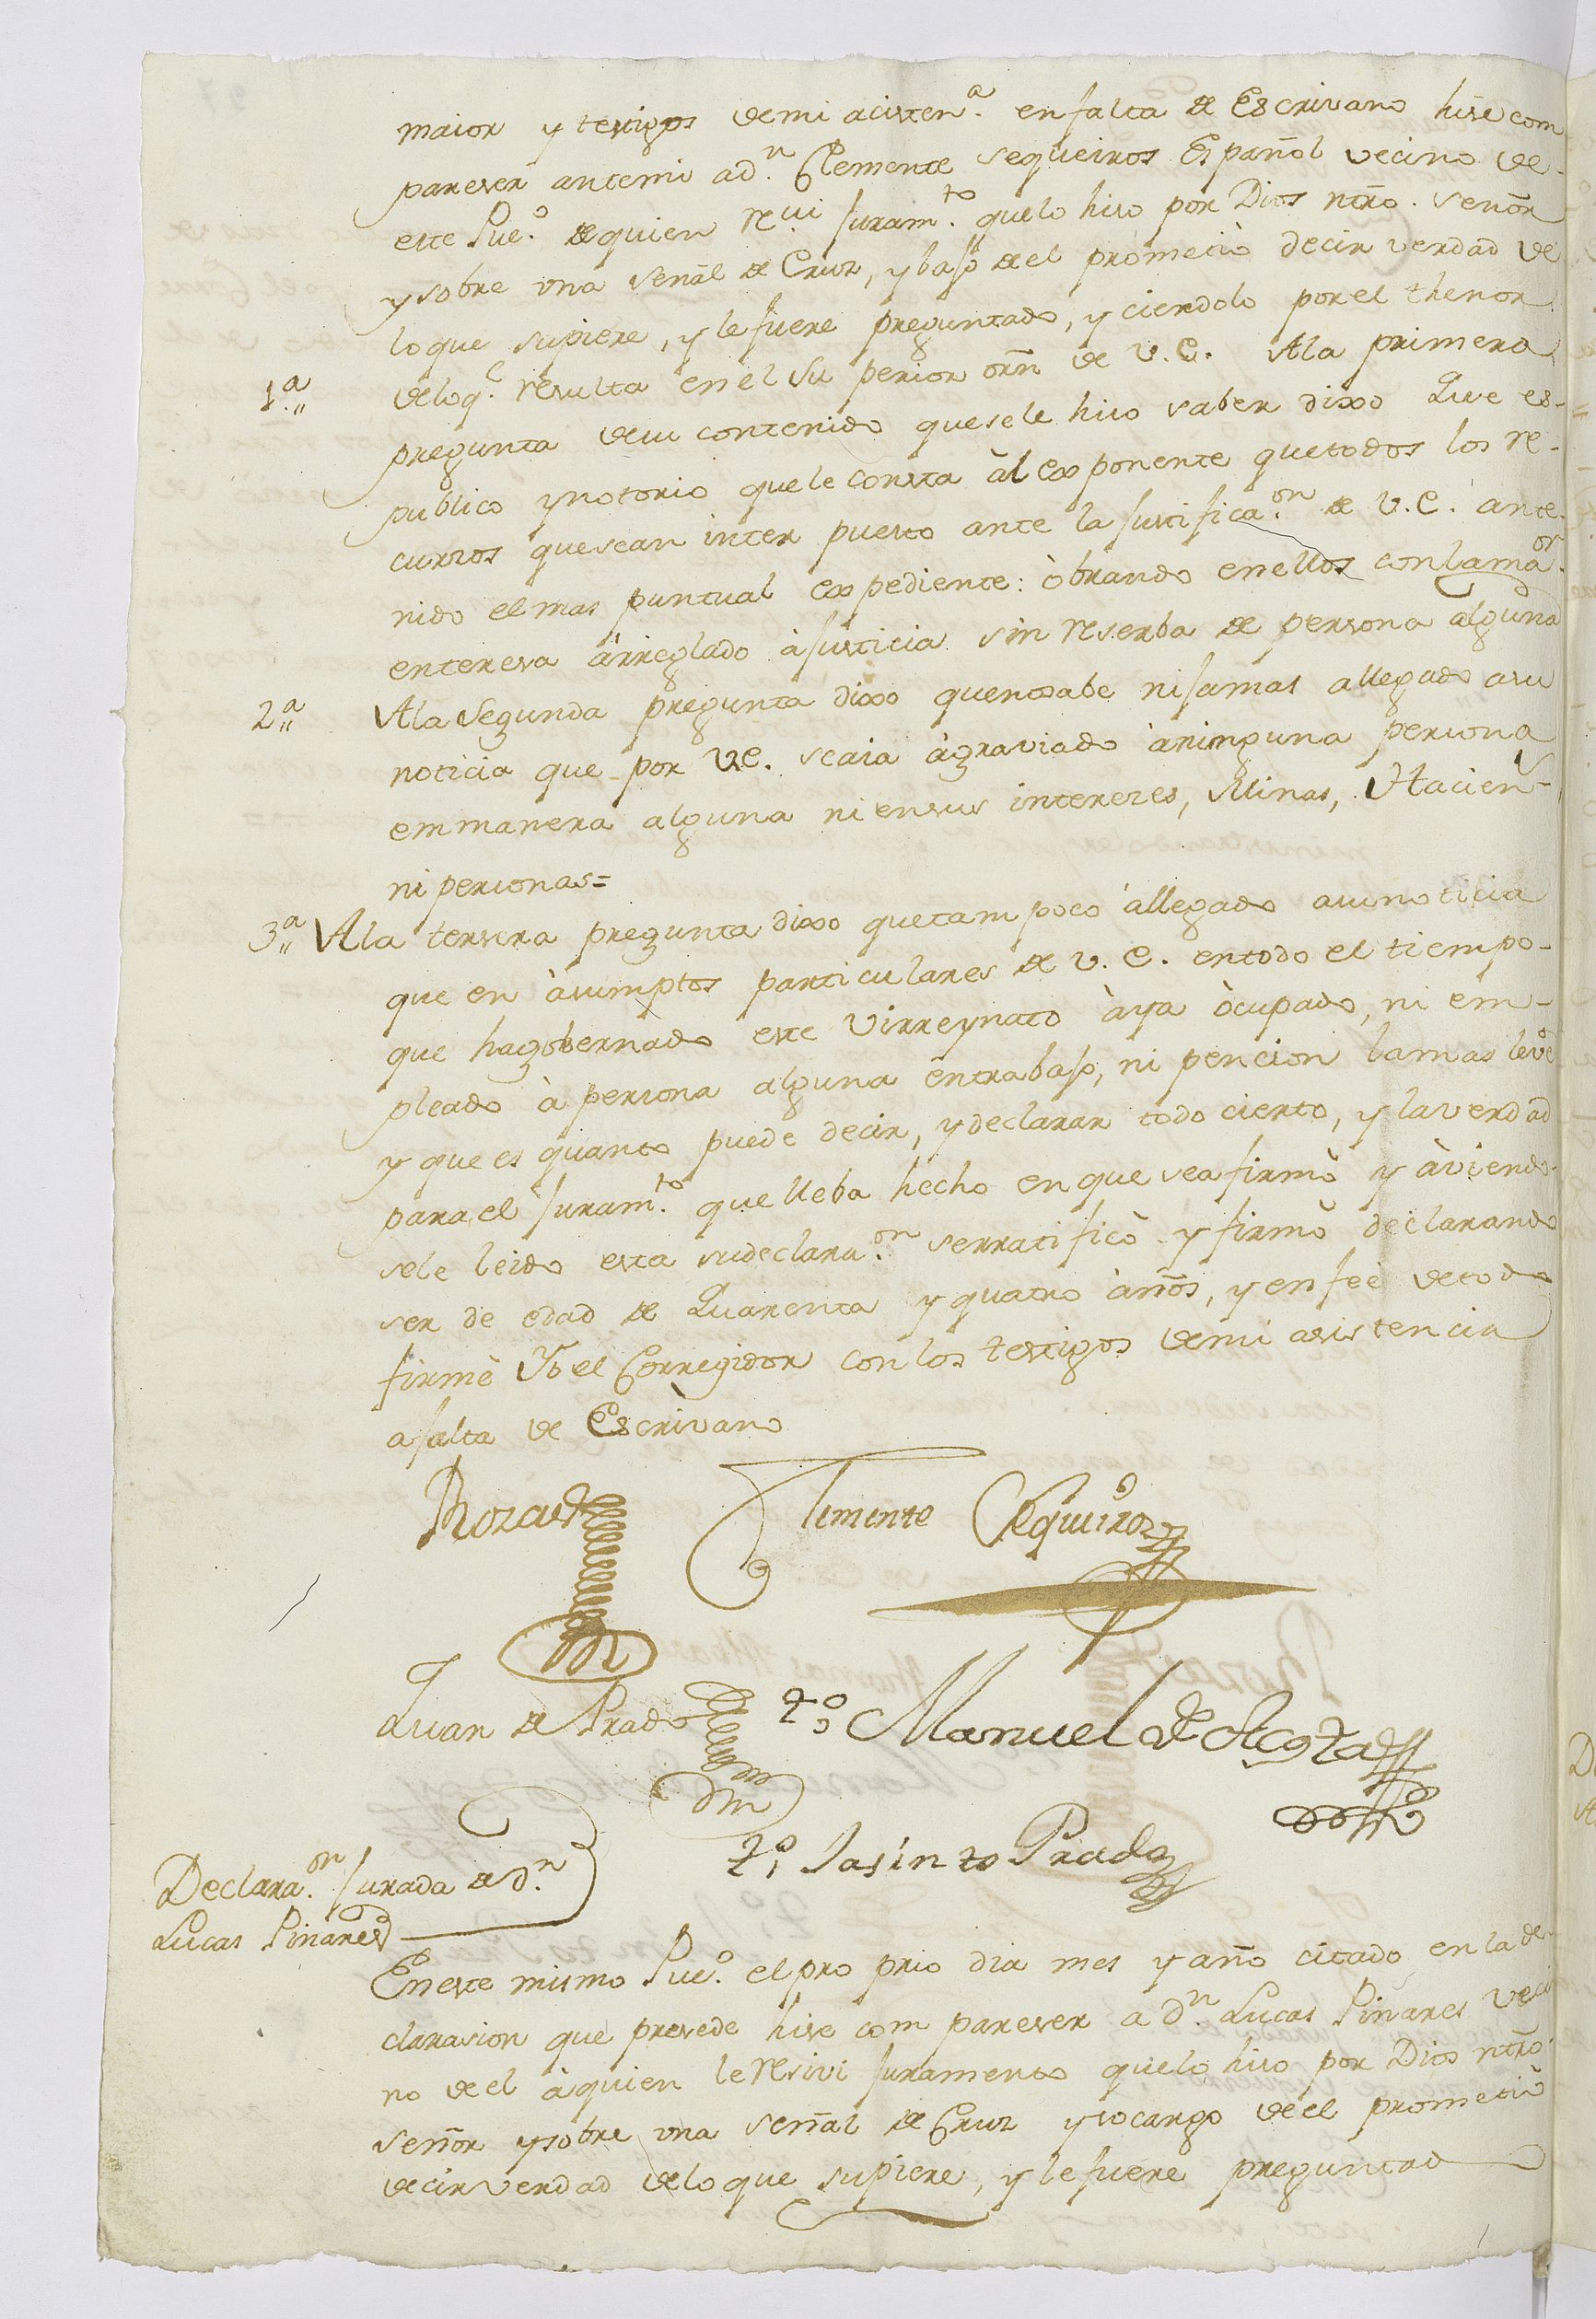 maior y testigos demi acisten.ª enfalta de Escrivano hise com
pareser antemi ad.n Clemente sequeiros Español vecino de
este Pue.º dequien reciui juram.to quelo hiso por Dios ntro. señor
ysobre una señal de Cruz, ybajo deel prometiò decir verdad de
loque supiere, y lefuere preguntado, y ciendolo porel thenor
1.ª deloq.e resulta enel Superior orñ de V.E. Ala primera
pregunta desu contenido quesele hiso saber dixo Que es-
publico ynotorio quele consta àl exponente quetodos los re-
cursos quesean inter puesto ante la justifica.on de V.E. ante
nido elmas puntual expediente: òbrando enellos conlama.or
enteresa àrreglado àjusticia sin reserba de persona alguna
2.ª Ala segunda pregunta dixo quenosabe nijamas allegado asu
noticia que por V.E. seaia àgraviado àninguna persona
emmanera alguna niensus interezes, Minas, Hacien-
ni personas=
3.ª Ala tersera pregunta dixo quetampoco àllegado asunoticia
que en àsumptos particulares de V.E. entodo el tiempo-
que hagobernado este Virreynato àya òcupado, ni em-
pleado à persona alguna entrabajo, ni pencion lamas leve
y que es quanto puede decir, ydeclarar todo cierto, y laverdad
parael juram.to quelleba hecho enque seafirmò y àviendo-
sele leido esta sudeclara.on serratificò y firmò declarando
ser de edad de Quarenta y quatro años, y enfeè detodo
firmè Yo el Corregidor conlos testigos demi asistencia
afalta de Escrivano
Rozas
Clemente Sequeiros
Juan de Prado
t.º Manuel de Acosta
t.º Jasinto Prado
Declara.on jurada de d.n
Lucas Pinares
Eneste mismo Pue.º elproprio dia mes y año citado en lade-
clarasion que presede hise compareser a d.n Lucas Piñares veci
no deel àquien leresivi juramento quelo hiso por Dios ntro
señor ysobre una señal de Cruz ysocargo deel prometiò
decirverdad deloque supiere, y lefuere preguntad